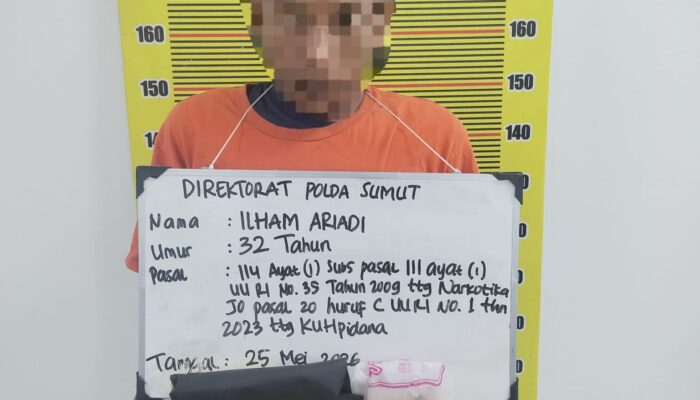 160 160
150 150
14 140
DIREKTORAT POLDA SUMUT
Nama : ILHAM ARIADI
Umur : 32 Tahun
Pasal : 114 Ayat (1) Subs pasal 111 ayat (1)
UU RI No. 35 Tahun 2009 ttg Narkotika
JO pasal 20 huruf C UU RI NO. 1 thn
2023 ttg KUHPidana
Tanggal : 25 Mei 2026